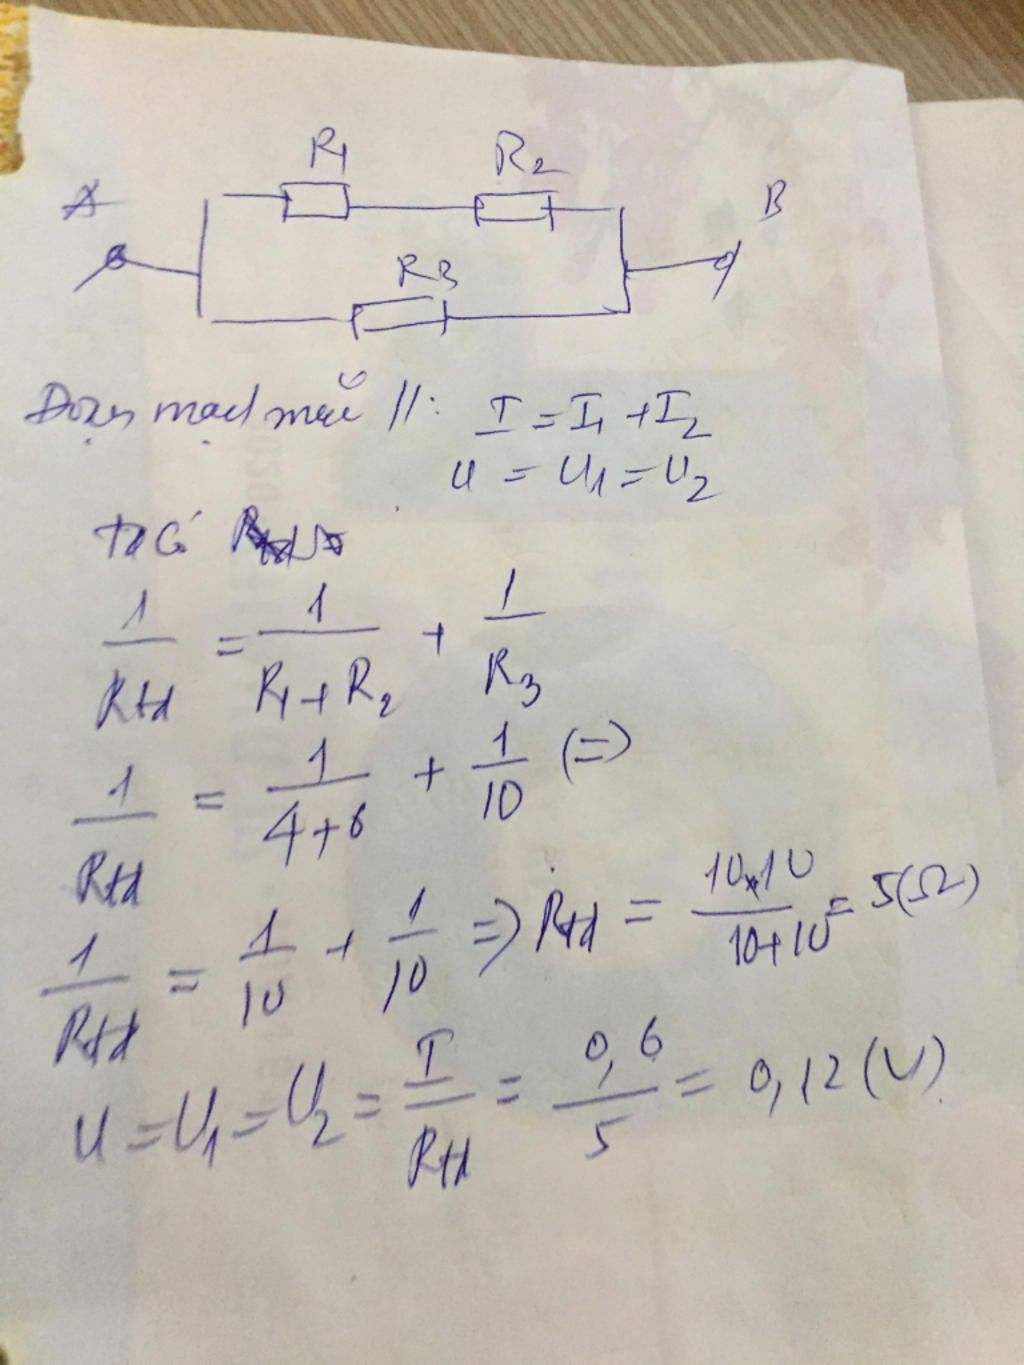 R1 R2
A B
R3
Đoạn mạch mắc //: I = I1 + I2
U = U1 = U2
ta có
1/Rtđ = 1/(R1 + R2) + 1/R3
1/Rtđ = 1/(4+6) + 1/10 (=)
1/Rtđ = 1/10 + 1/10 => Rtđ = 10x10/(10+10) = 5(Ω)
U = U1 = U2 = I/Rtđ = 0,6/5 = 0,12 (V)